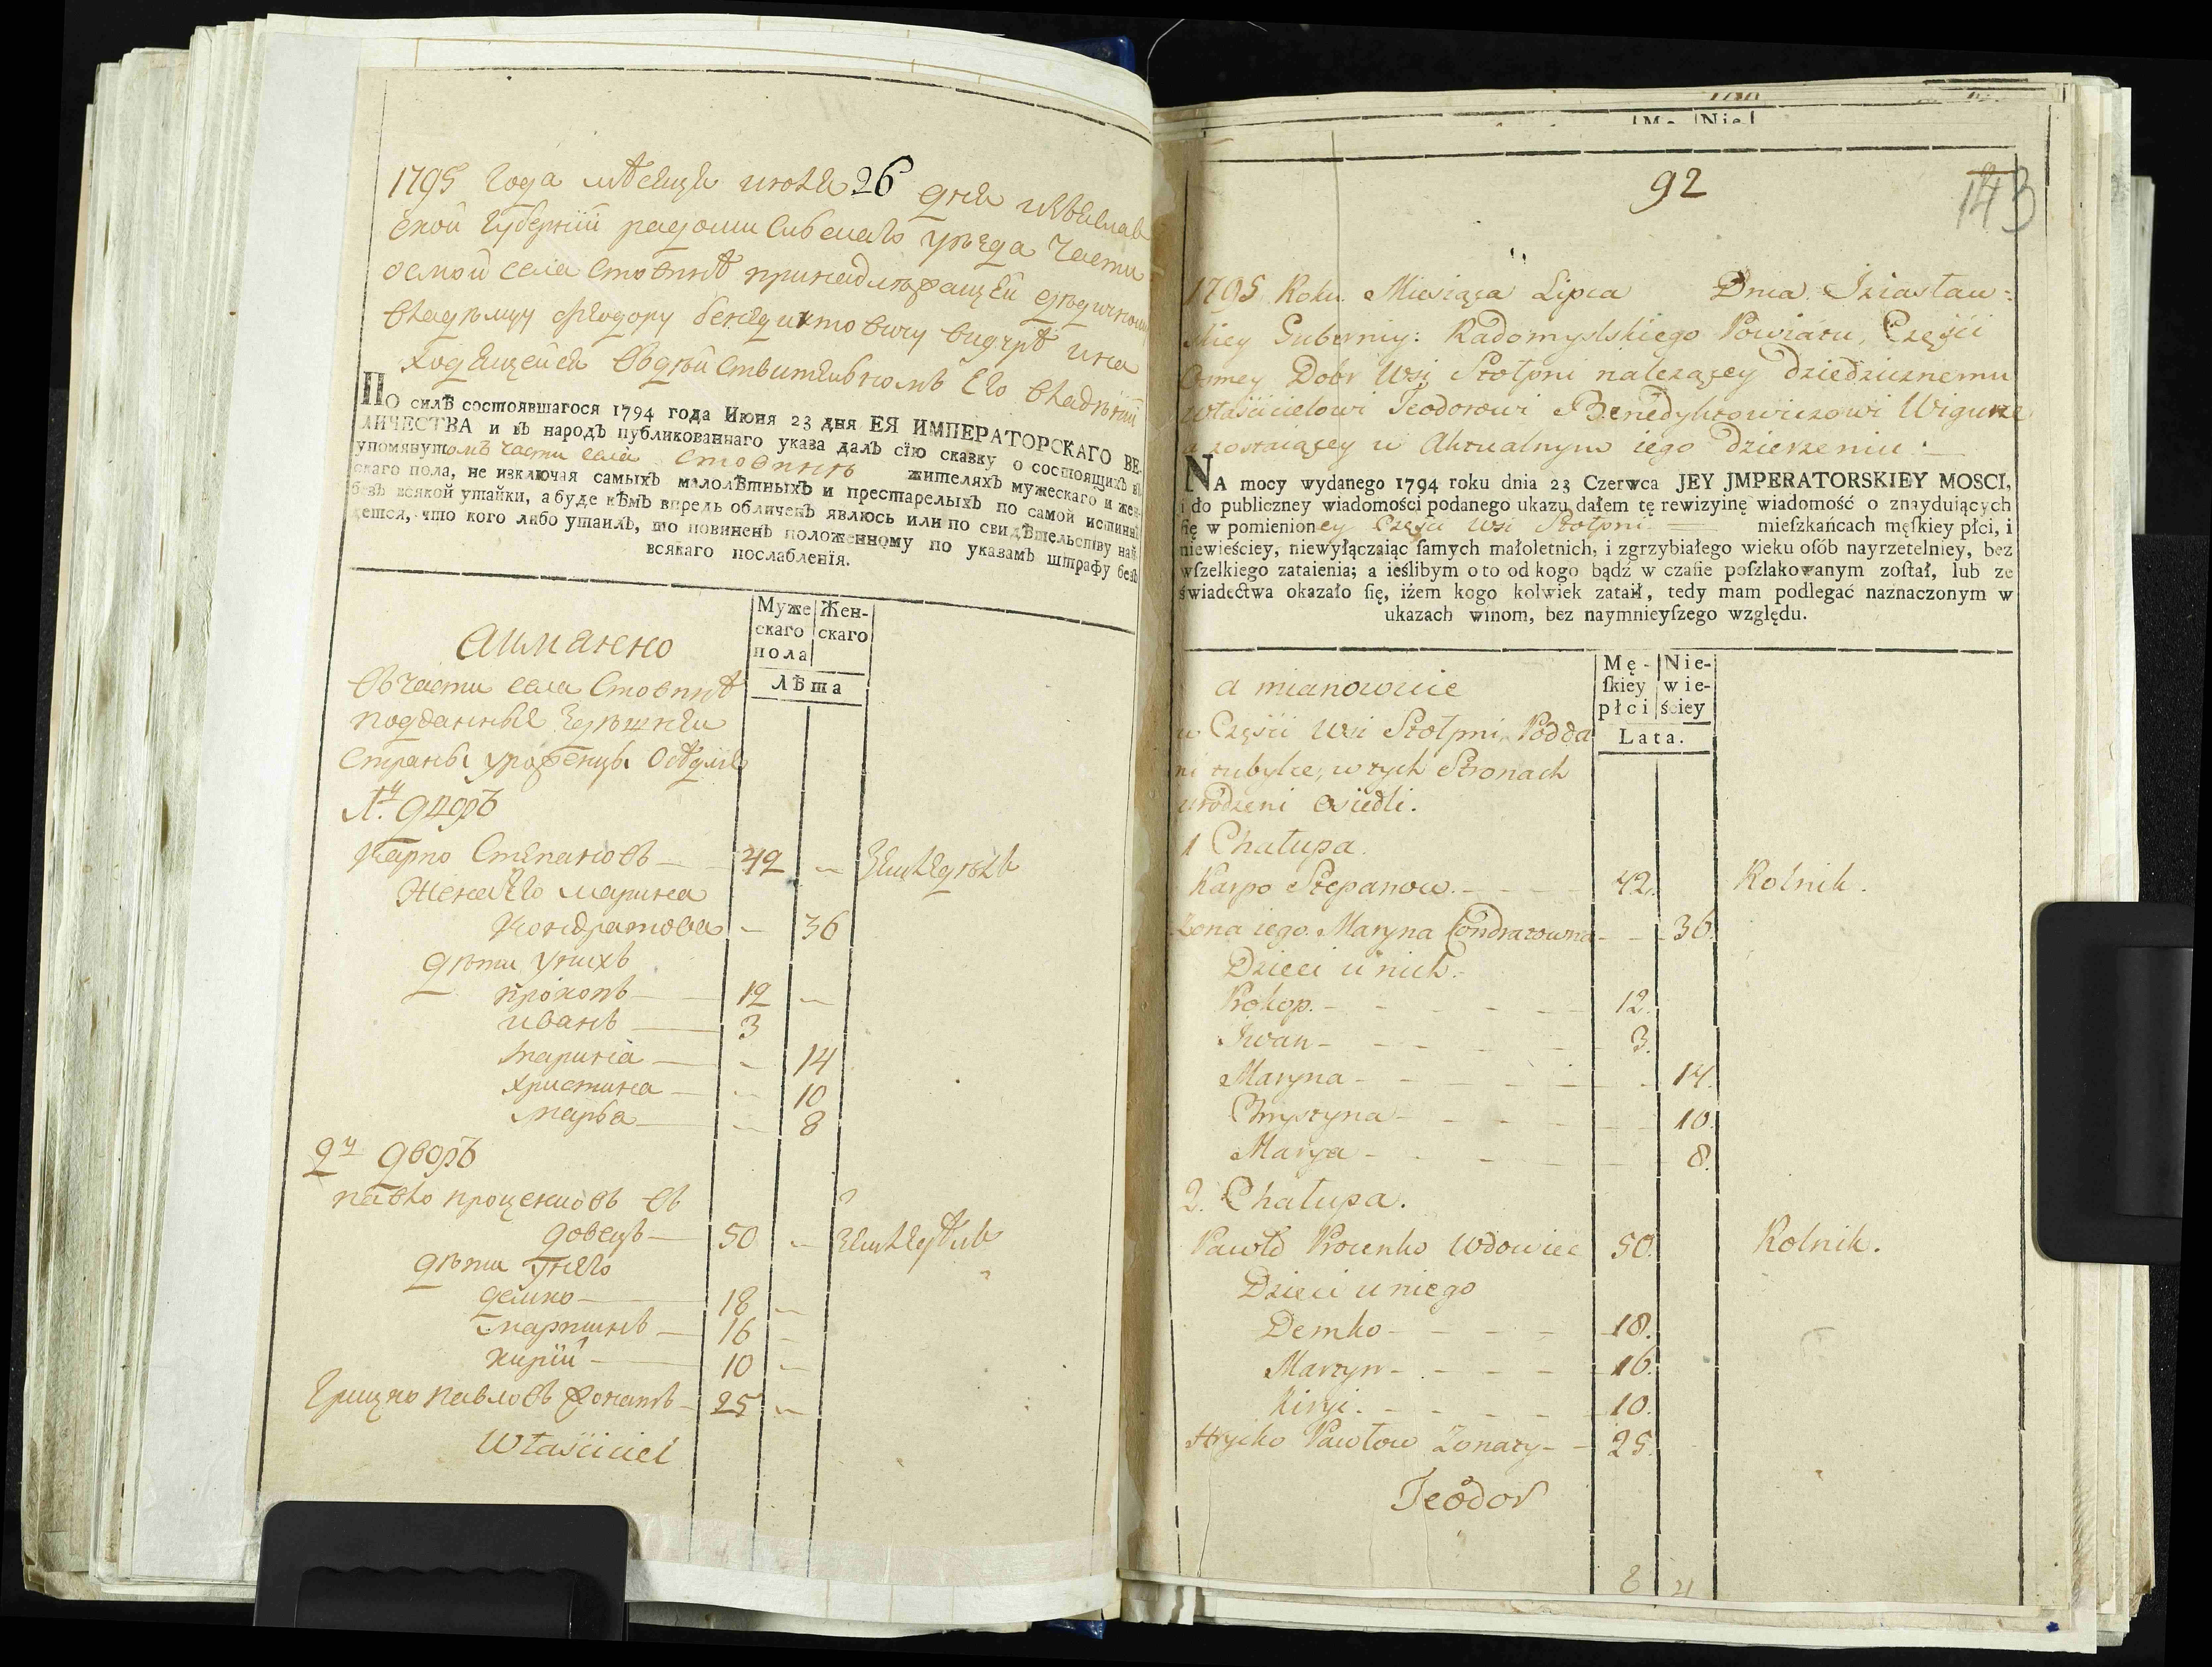 1795 года мѣсяца июля 26 дня изяслав
ской губернїи радомисльскаго уезда части
осмой села стовпнѣ принадлежащей дѣдичному
владѣлцу феодору бенедиктовичу вигурѣ и на
ходящейся въдѣйствительномъ его владѣнїи
По силѣ состоявшагося 1794 года Июня 23 дня ЕЯ ИМПЕРАТОРСКАГО ВЕ-
ЛИЧЕСТВА и въ народъ публикованнаго указа далъ сїю сказку о состоящихъ въ
упомянутомъ части села стовпнѣ жителяхъ мужескаго и жен-
скаго пола, не изключая самыхъ малолѣтныхъ и престарелыхъ по самой истиннѣ
безъ всякой утайки, а буде кѣмъ впредь обличенъ явлюсь или по свидѣтельству най
дется, что кого либо утаилъ, то повиненъ положенному по указамъ штрафу безъ
всякаго послабленїя.
Муже Жен-
скаго скаго
пола
Лѣта
аимянно
въчасти села стовпнѣ
подданные здѣшнеи
страны уроженцы
1й дворъ
Карпо степановъ 42 землед
жена его марина
кондратова 36
дѣти унихъ
прокопъ 12
иванъ 3
марина 14
христина 10
марья 8
2й дворъ
павло проценковъ въ
довецъ 50
дѣти унего
демко 18
мартинъ 16
кирїй 10
грицко павловъ жонатъ 25
Właściciel
92
143
1795 Roku Miesiąca Lipca Dnia Iziasław=
skiey Guberniy: Radomyslskiego Powiatu, Częsci
Osmey Dobr Wsi Stołpni nalezącey dziedzicznemu
właścicielowi Teodorowi Benedyktowiczowi Wigurze
a zostaiącey w Aktualnym iego Dzierzeniu.
NA mocy wydanego 1794 roku dnia 23 Czerwca JEY JMPERATORSKIEY MOSCI,
i do publiczney wiadomości podanego ukazu dałem tę rewizyinę wiadomość o znayduiących
się w pomienioney Części Wsi Stołpni mieſzkańcach męſkiey płci, i
niewieściey, niewyłączaiąc ſamych małoletnich, i zgrzybiałego wieku oſób nayrzetelniey, bez
wſzelkiego zataienia; a ieślibym oto od kogo bądź w czaſie poſzlakowanym zoſtał, lub ze
świadectwa okazało ſię, iżem kogo kolwiek zataił, tedy mam podlegać naznaczonym w
ukazach winom, bez naymnieyſzego względu.
Mę- Nie-
ſkiey wie-
płci ściey
Lata.
a mianowicie
w Części Wsi Stołpni Podda
ni tubylce, w tych Stronach
urodzeni osiedli.
1 Chałupa.
Karpo Stepanow. 42. Rolnik.
Zona iego Maryna Condratowna 36.
Dzieci u nich.
Prokop. 12.
Iwan 3.
Maryna 14.
Chrystyna 10.
Marya 8.
2. Chałupa.
Pawło Procenko Wdowiec 50. Rolnik.
Dzieci u niego
Demko 18.
Martyn 16.
Kiryi. 10.
Hrycko Pawłow Zonaty 25.
Teodor
8 4